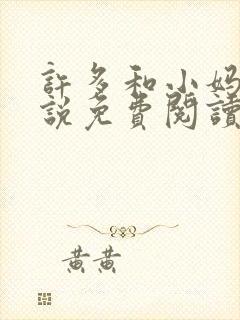 許多和小妈
説免費閱讀
黃黃